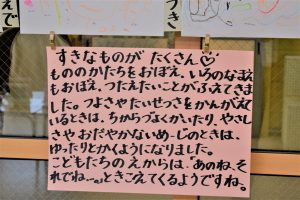 すきなものが たくさん♡
もののかたちをおぼえ、いろのなまえ
もおぼえ、つたえたいことがふえてきま
した。つよさやたいせつさをかんがえて
いるときは、ちからづよくかいたり、やさし
さやおだやかないめーじのときは、
ゆったりとかくようになりました。
こどもたちの えからは、「あのね、そ
れでね...。」ときこえてくるようですね。